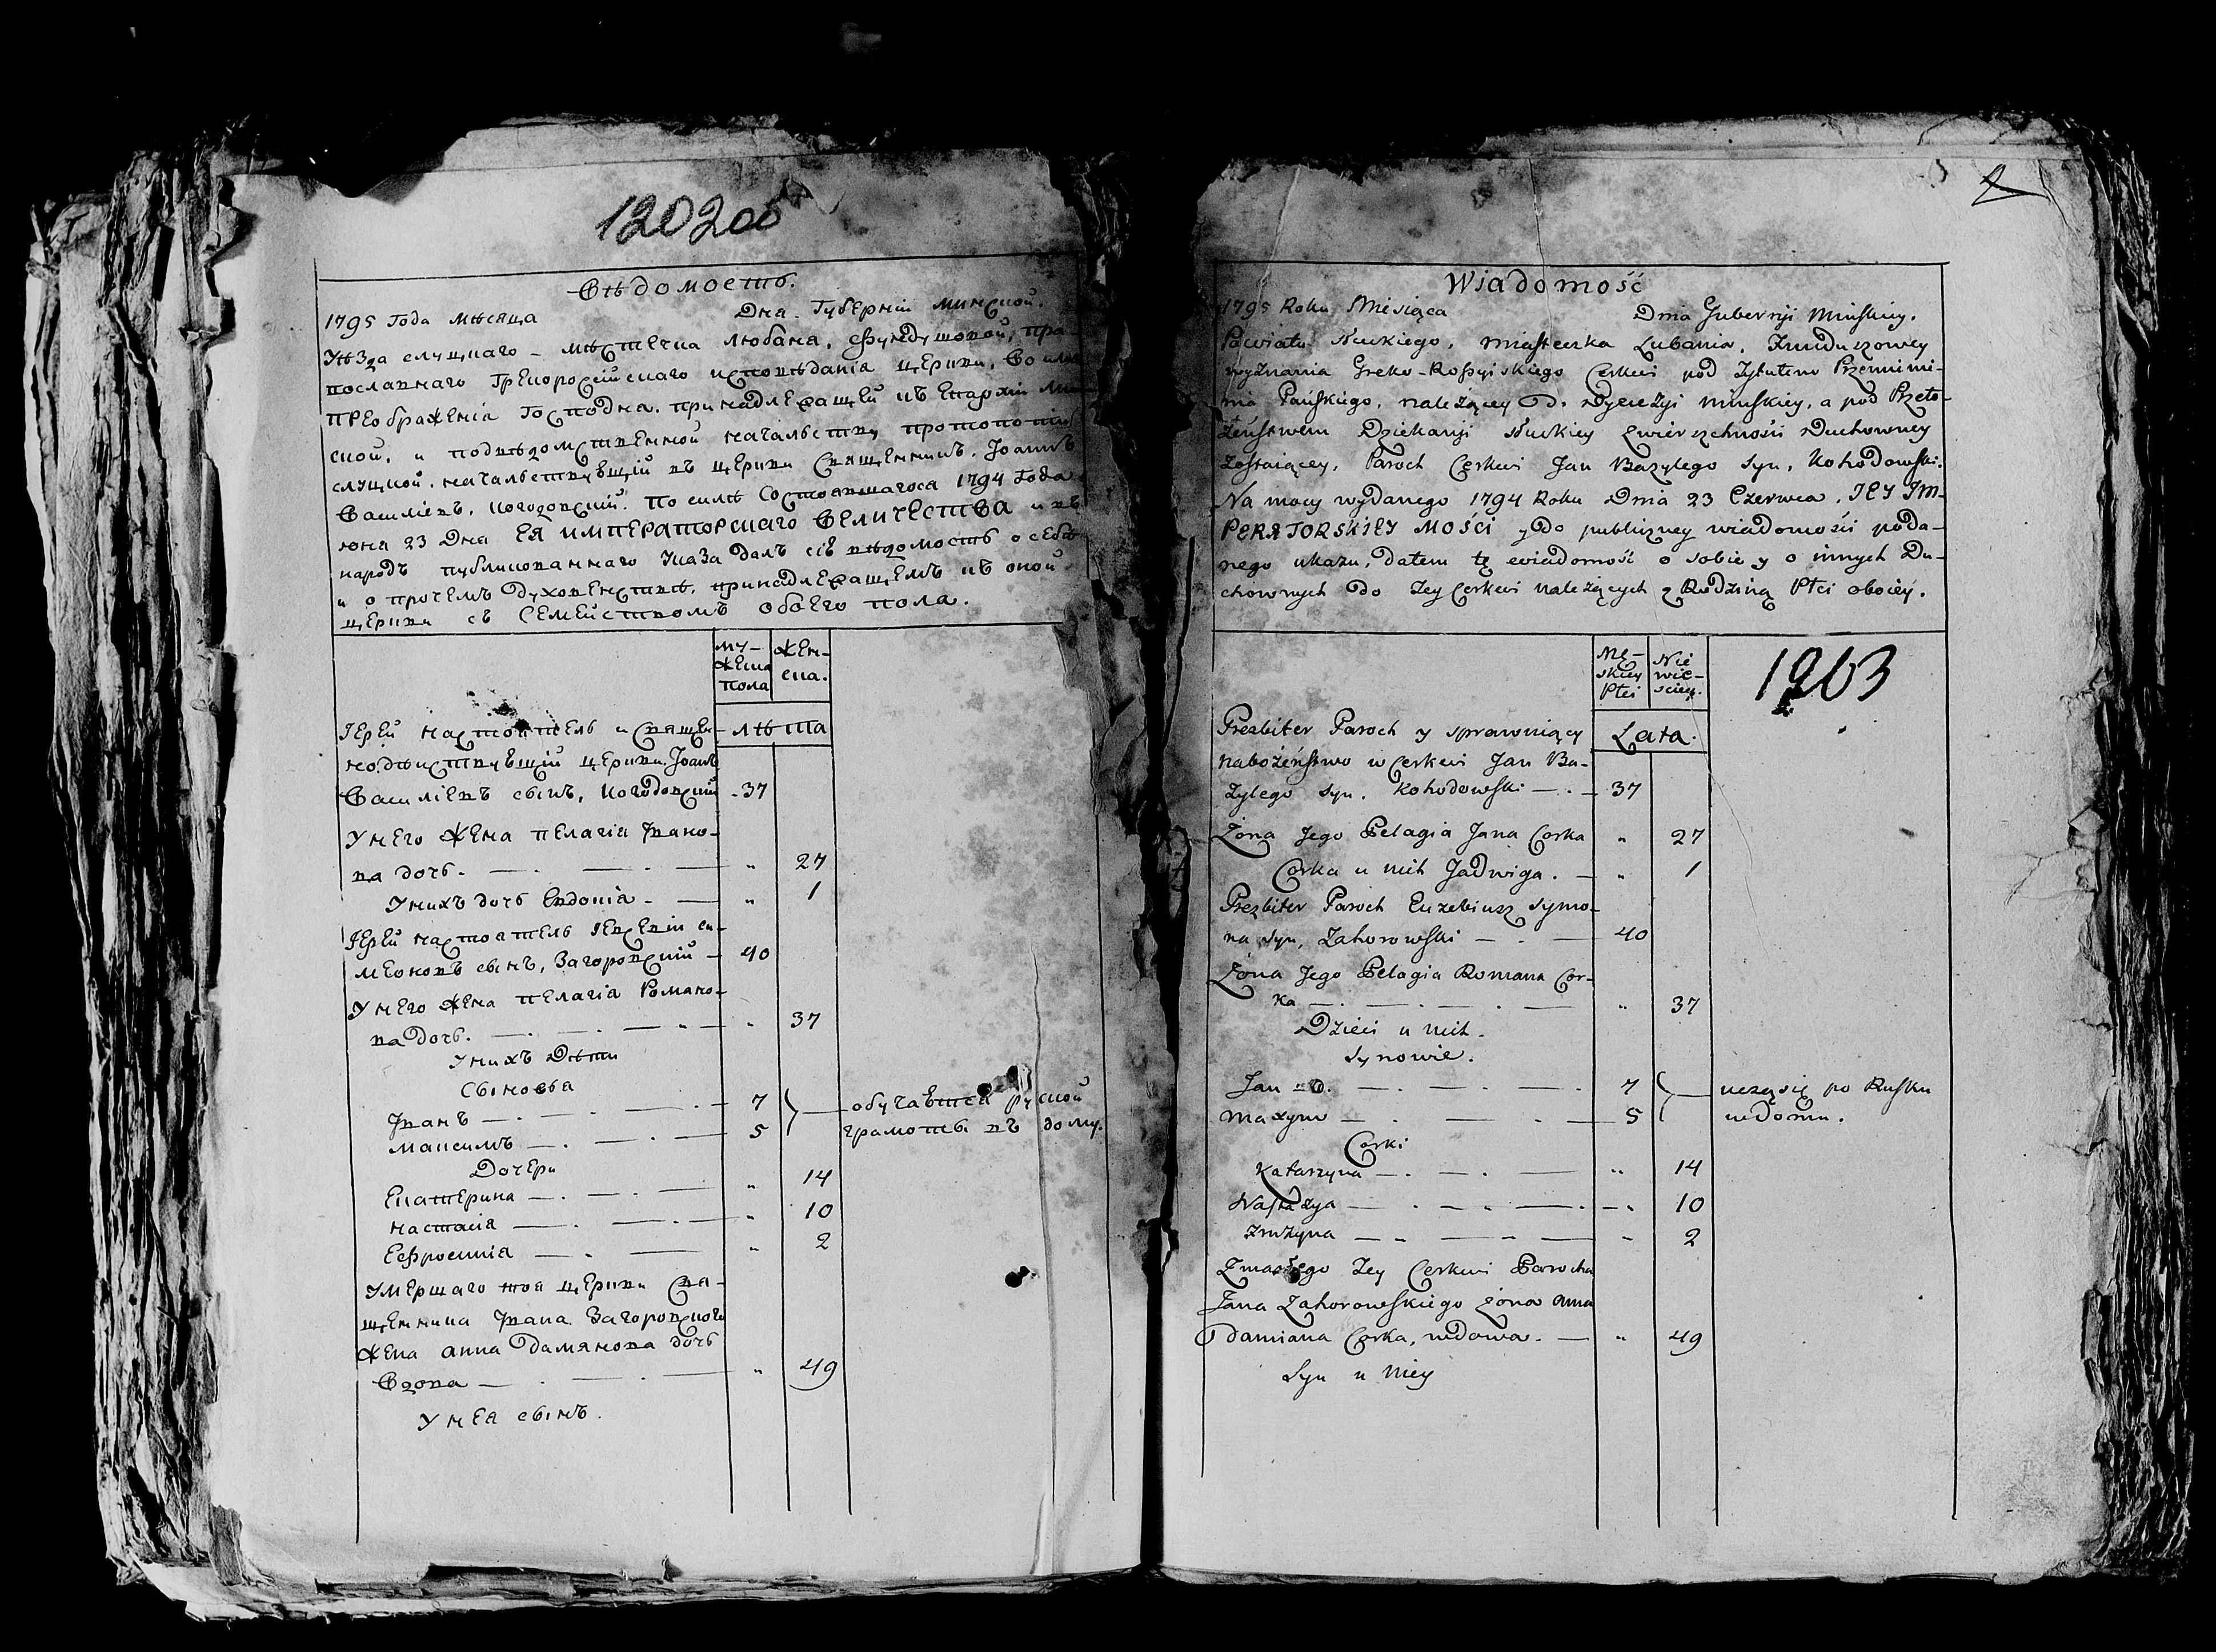 1202об
Вѣдомость.
1795 Года мѣсяца Дня. Губернїи минской.
Уѣзда слуцкаго - мѣстечка Любаня, Фундушовой, пра-
вославнаго Грекоросїйскаго исповѣданїя церкви, Во имя
преображенїя Господня. принадлежащей къ Епархїи Мин
ской, и подвѣдомственной начальству протопопїи
слуцкой. началствующїй въ церкви Священникъ. Јоаннъ
Василїевъ, когодовскїй. По силѣ Состоявшагося 1794 Года
июня 23 Дня ЕЯ ИМПЕРАТОРСКАГО ВЕЛИЧЕСТВА и въ
народъ публикованнаго Указа далъ сїе вѣдомость о себѣ
и о протчемъ духовенствѣ, принадлежащемъ къ оной
церкви съ Семействомъ обоего пола.
му-
жеска
пола
жен-
ска.
лѣта
Јерей настоятель и священ-
нодѣйствующїй церкви. Јоаннъ
Василїевъ сынъ, Когодовскїй - 37
У него жена пелагїя Јвано-
ва дочь. — „ 27
У нихъ дочь Евдокїя - — „ 1
Јерей настоятель Јевсевїй си-
меоновъ сынъ, Загоровскїй - 40
У него жена пелагїя Романо-
ва дочь. — „ 37
У нихъ Дѣти
Сыновья
Јванъ — 7 обучаются руской
максимъ — 5 грамоты въ дому.
Дочери
Екатерина — „ 14
настасїя — „ 10
Ефросинїя — „ 2
Умершаго тоя церкви Свя-
щенника Јвана Загоровского
Жена анна Дамянова дочь
Вдова — „ 49
У нея сынъ.
2
Wiadomość
1795 Roku Miesiąca Dnia Gubernji Mińskiey.
Powiatu Słuckiego, miasteczka Lubania, Funduszowey
wyznania Greko-Roſsyiskiego Cerkwi pod Tytułem Przemienie-
nia Pańskiego, należącey do Dyecezyi Mińskiey, a pod Przeło-
żeństwem Dziekanji słuckiey zwierzchności Duchowney
zostaiącey, Paroch Cerkwi Jan Bazylego syn, Kohodowski.
Na mocy wydanego 1794 Roku Dnia 23 Czerwca, JEY IM-
PERATORSKIEY MOŚCI y do publiczney wiadomości poda-
nego ukazu, dałem tę wiadomość o sobie y o innych Du-
chownych do Tey Cerkwi należących z Rodziną Płci oboiey.
Mę-
skiey
Płci
Nie
wie-
sciey.
1203
Lata.
Prezbiter Paroch y sprawuiący
nabożeństwo w Cerkwi Jan Ba-
zylego syn, Kohodowski — 37
Żona Jego Pelagia Jana Corka „ 27
Corka u nich Jadwiga. — „ 1
Prezbiter Paroch Euzebiusz Symo-
na syn, Zahorowski — 40
Żona Jego Pelagia Romana Cor-
ka — „ 37
Dzieci u nich.
Synowie.
Jan — 7 uczą się po Rusku
Maxym — 5 w domu.
Corki
Katarzyna — „ 14
Nastazya — „ 10
— „ 2
Zmarłego Tey Cerkwi Parocha
Jana Zahorowskiego Żona Anna
Damiana Corka, wdowa. — „ 49
Syn u Niey